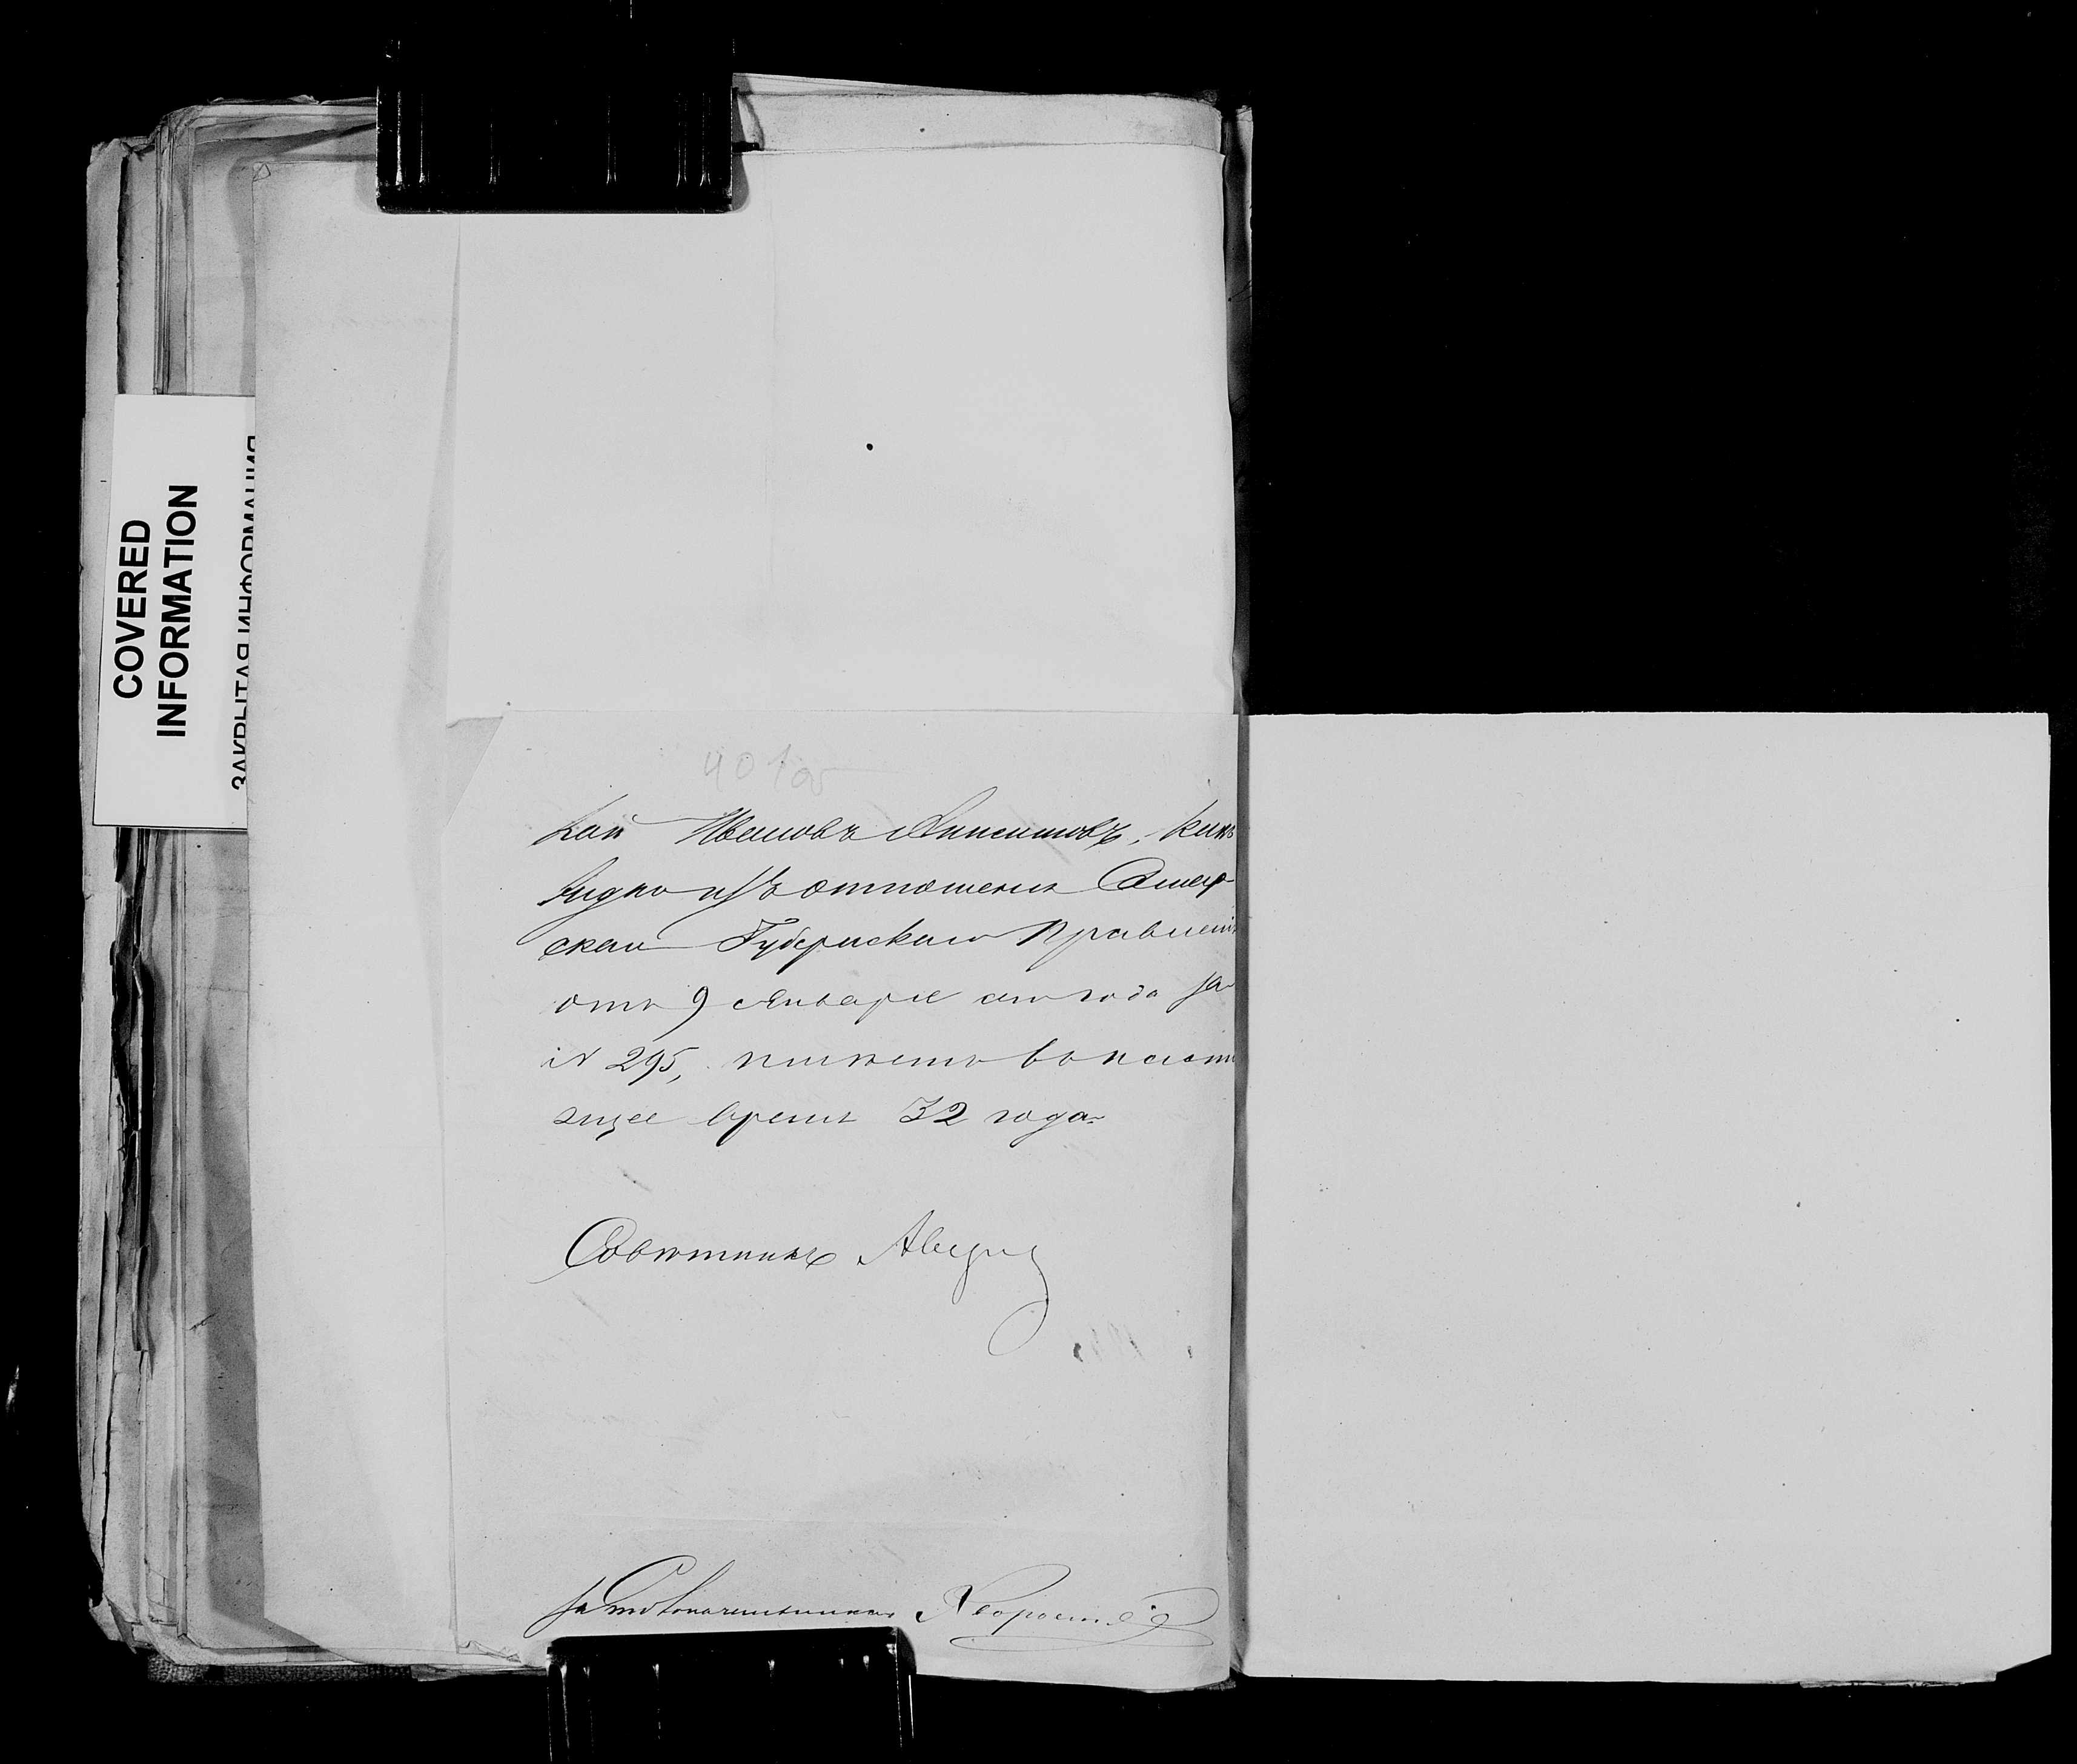 COVERED
INFORMATION
ЗАКРЫТАЯ ИНФОРМАЦИЯ
401об
кай Ивановъ Анисимовъ, какъ
видно изъ отношенія
скаго Губернскаго Правленія
отъ 9 Января сего года за
№ 295, имѣетъ въ наст
ящее время 32 года.
Совѣтникъ
За Столоначальника